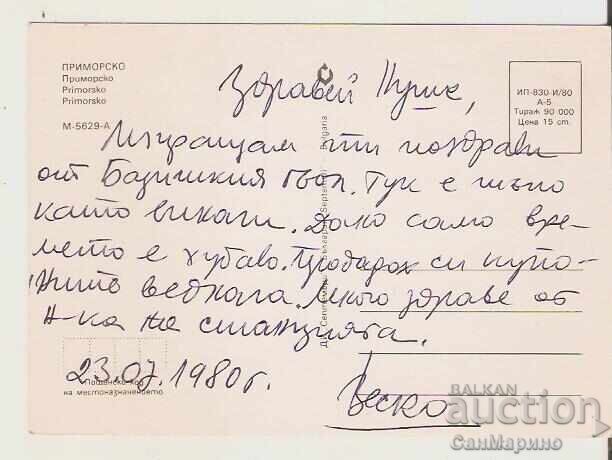 ПРИМОРСКО
Приморско
Primorsko
Primorsko
М-5629-А
ИП-830-И/80
А-5
Тираж 90 000
Цена 15 ст.
Здравей
Изпращам ти поздрави
от Тук е
както винаги. само вре-
мето е хубаво. Продадох си купо-
ните веднага. Много здраве от
н-ка на станцията.
23.07.1980г.
Веско
Пощенски код
на местоназначението
Bulgaria
BALKAN
auction
СанМарино